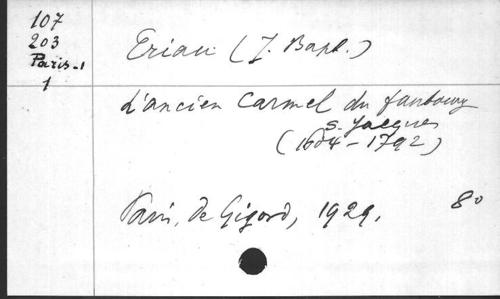 107
203
Paris-1
1
Eriau (J. Bapt.)
L'ancien Carmel du faubourg
S. Jacques
(1604-1792)
Paris, de Gigord, 1929. 8°